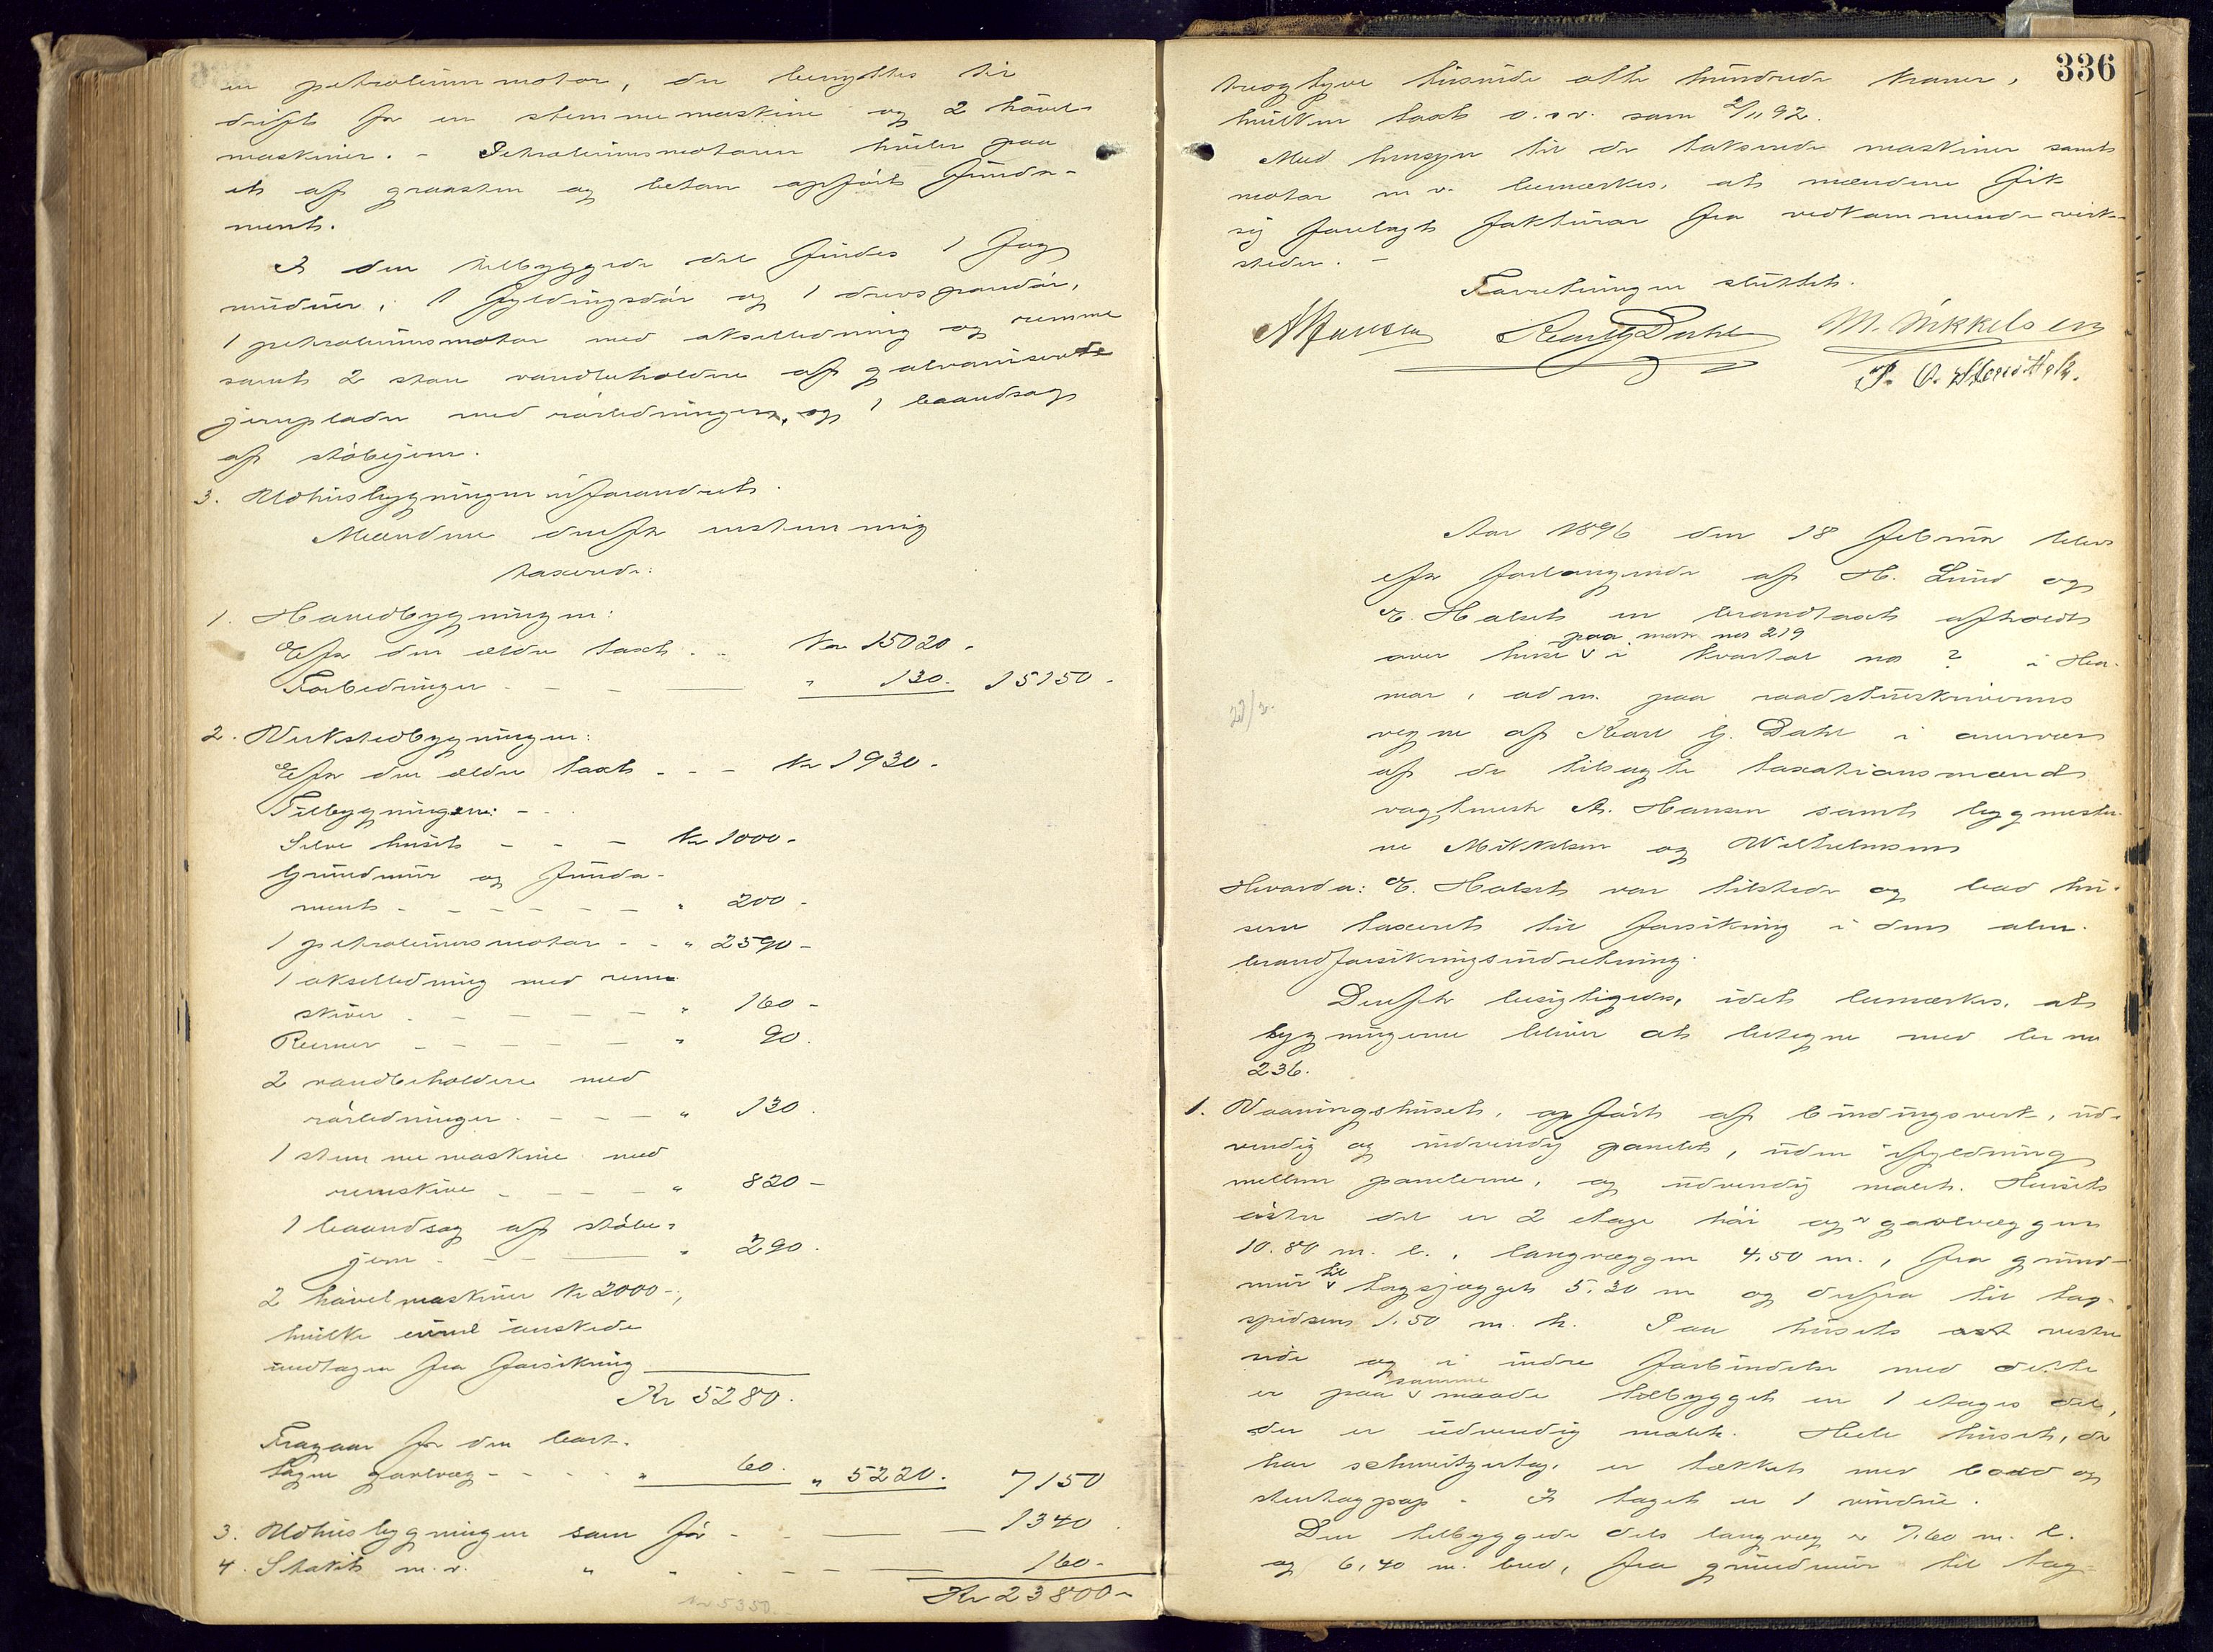 en petroleumsmotor, der benyttes til
drift for en stemmemaskine og 2 hövel-
maskiner. – Petroleumsmotoren hviler paa
et af graasten og beton opfört funda-
ment.
I den tilbyggede del findes 1 fag
vinduer, 1 fyldingsdör og 1 drevspandör,
1 petroleumsmotor med akselledning og remme
samt 2 store vandbeholdere af galvaniserede
jernplader med rörledninger, og 1 baandsag
af stöbejern.
3. Udhusbygningen uforandret.
Mændene derefter enstemmig
taxerede:
1. Hovedbygningen:
Efter den ældre taxt . . Kr 15020 -
Forbedringer - - — " 130. 15150 -
2. Verkstedbygningen:
Efter den ældre taxt - - - Kr 1930 -
Tilbygningen: - .
Selve huset - - - Kr 1000 -
Grundmur og funda-
ment - - - - - - " 200 -
1 petroleumsmotor - - " 2590 -
1 akselledning med rem-
skiver . - - - - " 160 -
Remmer - - - - - " 90.
2 vandbeholdere med
rörledninger . - - - " 130.
1 stemmemaskine med
remskive - - - - " 820 -
1 baandsag af stöbe-
jern - - — " 290.
2 hövelmaskiner Kr 2000 -,
hvilke önskede
undtagen fra forsikring
Kr 5280.
Fragaar for den bort-
tagne gavlvæg - - - . " 60. " 5220. 7150
3. Udhusbygningen som för - - — 1340.
4. Stakit m. v. " - . - - — 160 -
Kr 23800 -
Kr 5350
336
treogtyve tusinde otte hundrede kroner,
hvilken taxt o. s. v. som 2/11 92.
Med hensyn til de takserede maskiner samt
motor m v. bemærkes, at mændene fik
sig forelagt fakturar fra vedkommende verk-
steder. –
Forretningen sluttet.
A Hansen Karl G Dahl M. Mikkelsen
Aar 1896 den 18 februar blev
efter forlangende af H. Lund og
E. Halset en brandtaxt afholdt
paa matr nos 219
over huse i kvartal no ? i Ha-
mar, adm. paa raadstueskriverens
23/3.
vegne af Karl G. Dahl i overvær
af de tilsagte taxationsmænd
vagtmester A. Hansen samt bygmester-
ne Mikkelsen og Wilhelmsen
Hvorda: E. Halset var tilstede og bad hu-
sene taxeret til forsikring i den alm.
brandforsikringsindretning.
Derefter besigtigedes, idet bemærkes, at
bygningerne bliver at betegne med br no
236.
1. Vaaningshuset, opfört af bindingsverk, ud-
vendig og indvendig panelet, uden ifyldning
mellem panelerne, og udvendig malet. Husets
östre del er 2 etage höi og gavlvæggen
10.80 m. l., langvæggen 4,50 m., fra grund-
mur til tagskjægget 5.30 m og derfra til tag-
spidsen 1.50 m. h. Paa husets vestre
side og i indre forbindelse med dette
er paa samme maade tilbygget en 1 etages del,
der er udvendig malet. Hele huset, der
har schweitzertag, er tækket med bord og
stentagpap. I taget er 1 vindue.
Den tilbyggede dels langvæg er 7.60 m. l.
og 6,40 m. bred, fra grundmur til tag-